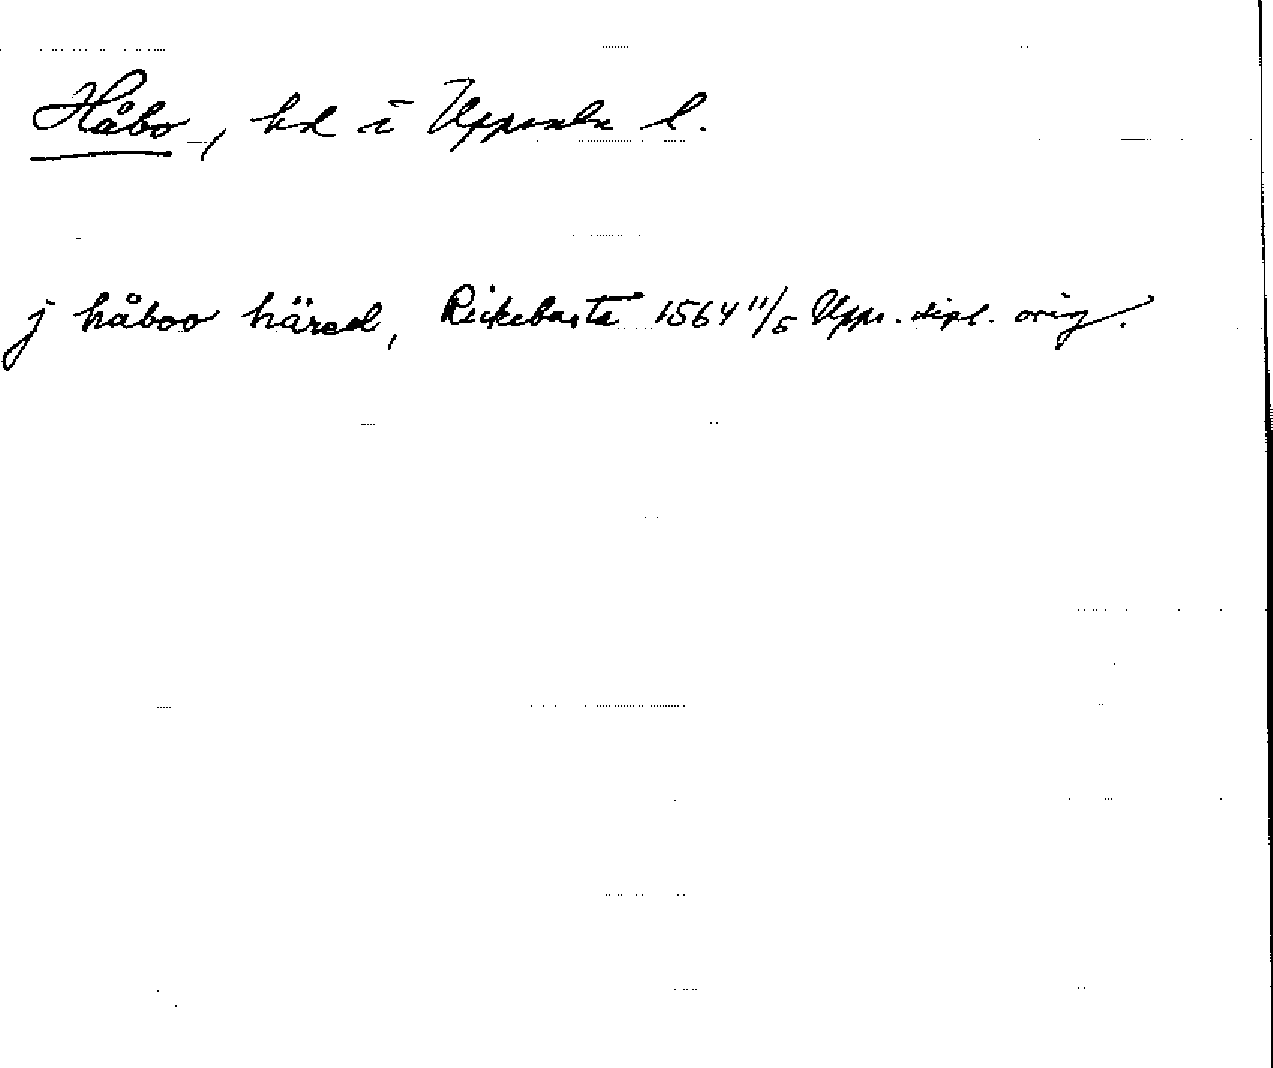 Håbo, hd i Uppsala l.
j håboo härad, Rickebasta 1564 11/5 Upps. dipl. orig.